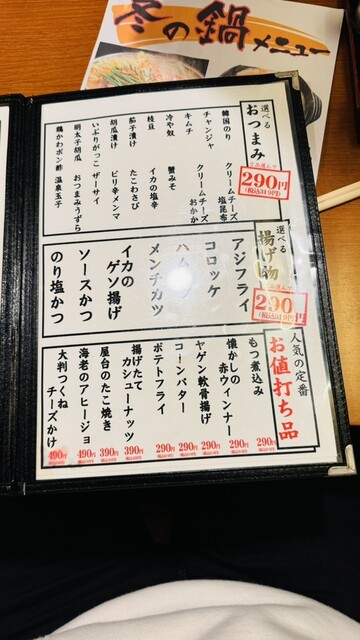 冬の鍋メニュー
選べる
おつまみ
290円
(税込319円)
韓国のり
チャンジャ
キムチ
冷や奴
枝豆
茄子漬け
胡瓜漬け
いぶりがっこ
明太子胡瓜
鶏かわポン酢
クリームチーズ
クリームチーズおかか
塩昆布
蟹みそ
イカの塩辛
たこわさび
ピリ辛メンマ
ザーサイ
おつまみうずら
温泉玉子
選べる
揚げ物
290円
(税込319円)
アジフライ
コロッケ
ハムカツ
メンチカツ
イカの
ゲソ揚げ
ソースかつ
のり塩かつ
人気の定番
お値打ち品
もつ煮込み
290円
懐かしの
赤ウィンナー
290円
ヤゲン軟骨揚げ
290円
コーンバター
290円
ポテトフライ
290円
揚げたて
カシューナッツ
390円
屋台のたこ焼き
390円
海老のアヒージョ
490円
大判つくね
チーズかけ
490円